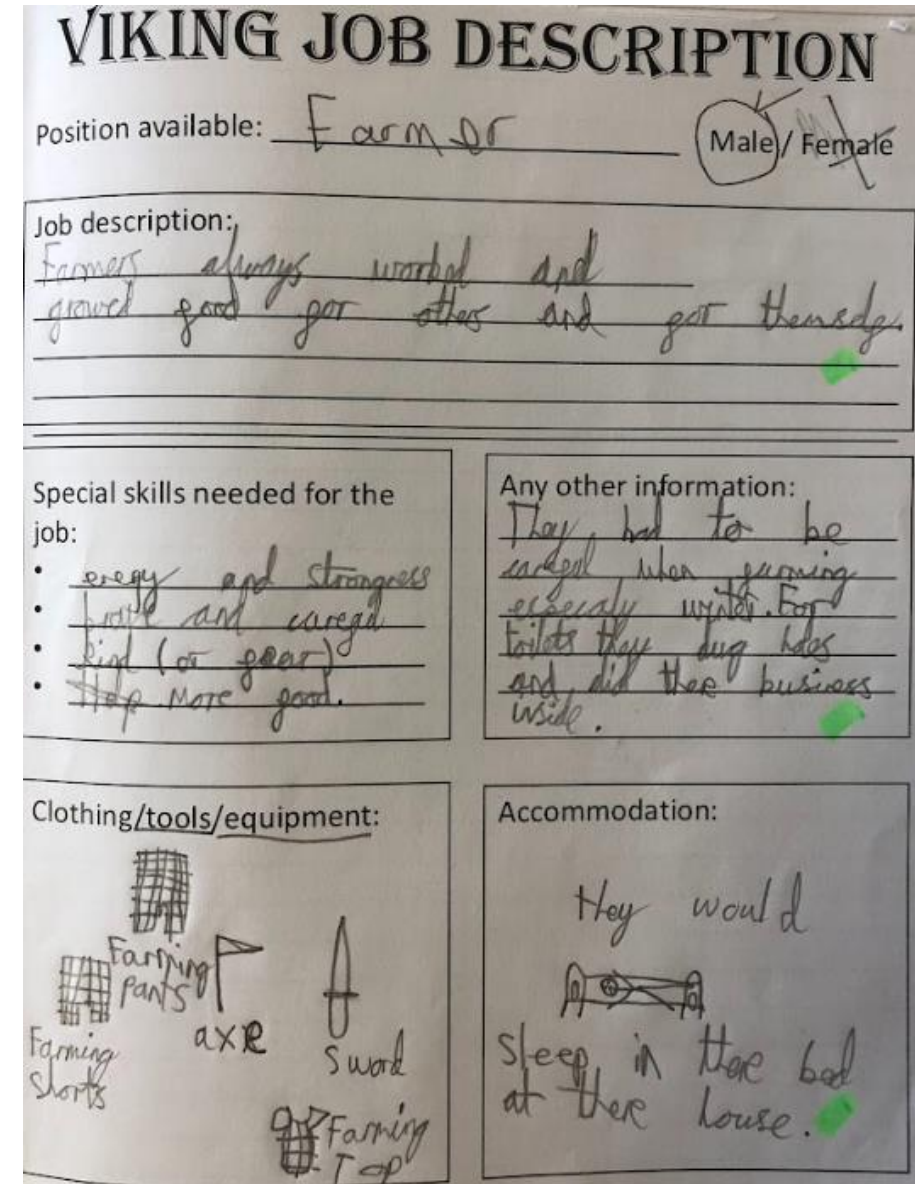 VIKING JOB DESCRIPTION
Position available: Farmer
Male / Female
Job description:
Farmers always worked and
growed food for others and for themselfe.
Special skills needed for the
job:
• eregy and strongness
• brave and carefull
• kind (or fear)
• Help more good.
Any other information:
They had to be
carefull when farming
especaly winter. For
toilets they dug holes
and did there business
inside.
Clothing/tools/equipment:
Farming
pants
axe
Sword
Farming
shorts
Farming
Top
Accommodation:
they would
sleep in there bed
at there house.